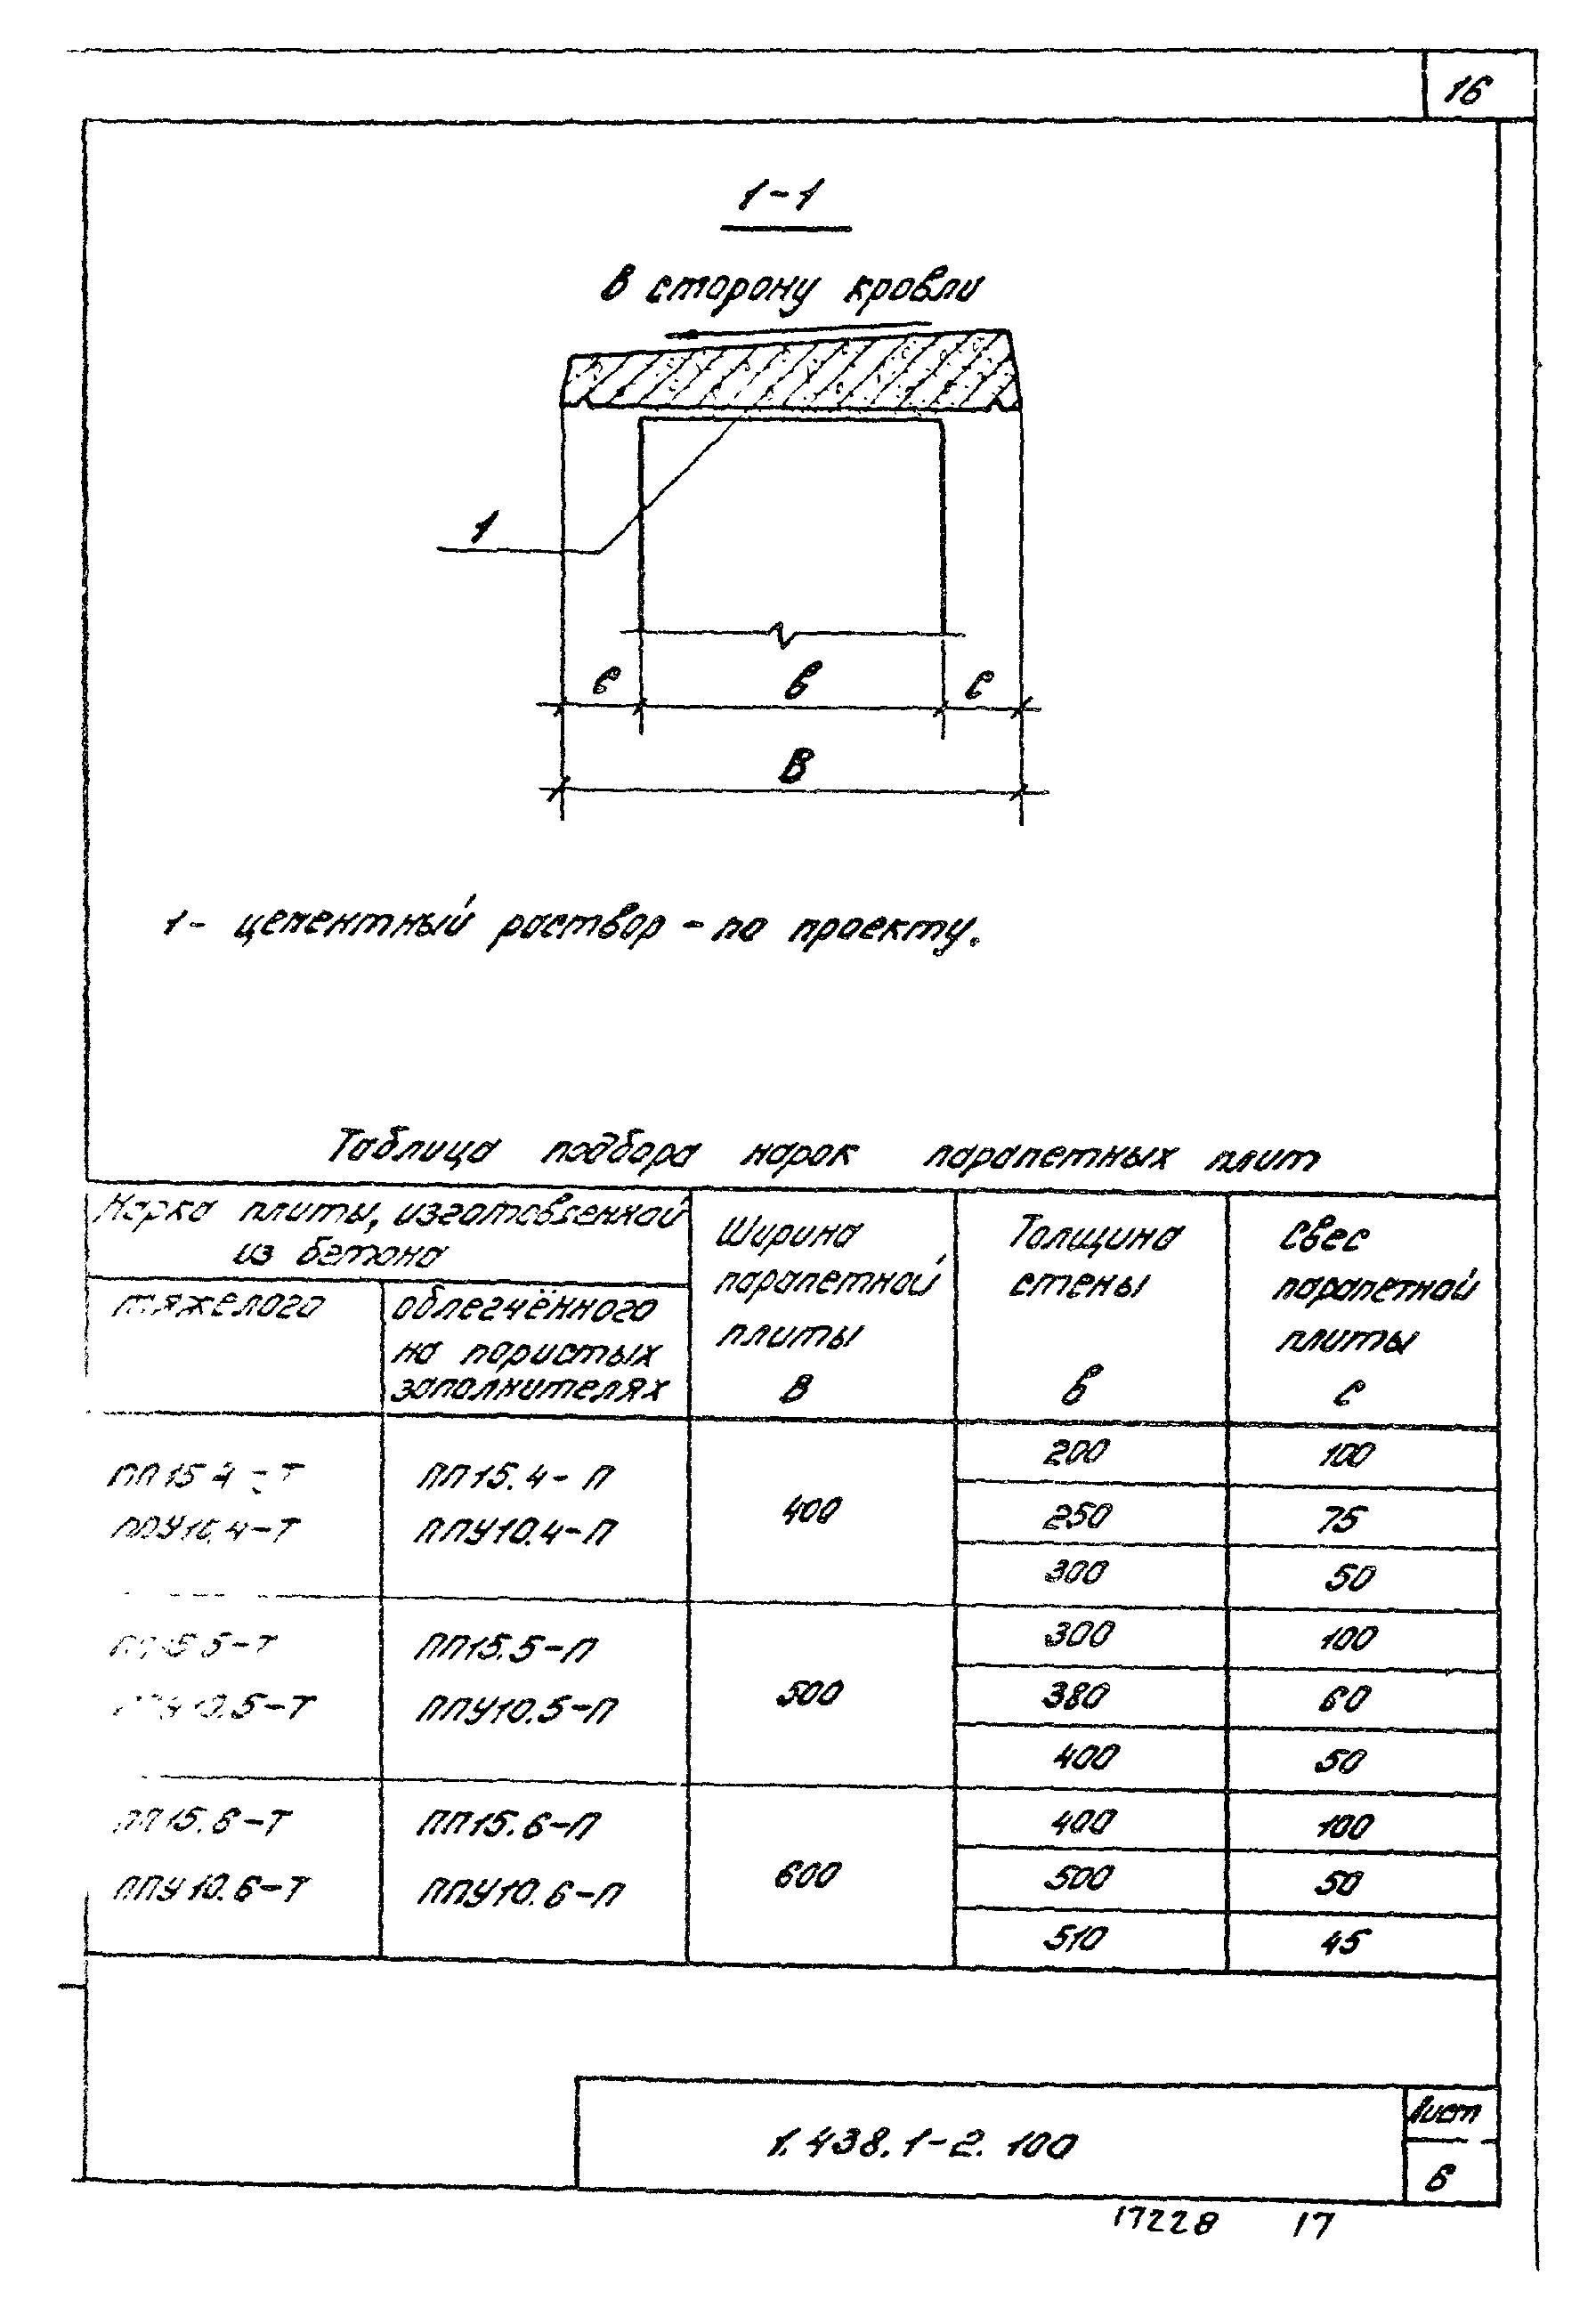 16
1-1
В сторону кровли
1
с в с
В
1- цементный раствор - по проекту.
Таблица подбора марок парапетных плит
Марка плиты, изготовленной
из бетона
тяжелого
облегчённого
на пористых
заполнителях
Ширина
парапетной
плиты
В
Толщина
стены
в
Свес
парапетной
плиты
с
ПП15.4-Т ПП15.4-П
ППУ10.4-Т ППУ10.4-П
400
200 100
250 75
300 50
ПП15.5-Т ПП15.5-П
ППУ10.5-Т ППУ10.5-П
500
300 100
380 60
400 50
ПП15.6-Т ПП15.6-П
ППУ10.6-Т ППУ10.6-П
600
400 100
500 50
510 45
1.438.1-2. 100
Лист
6
17228 17